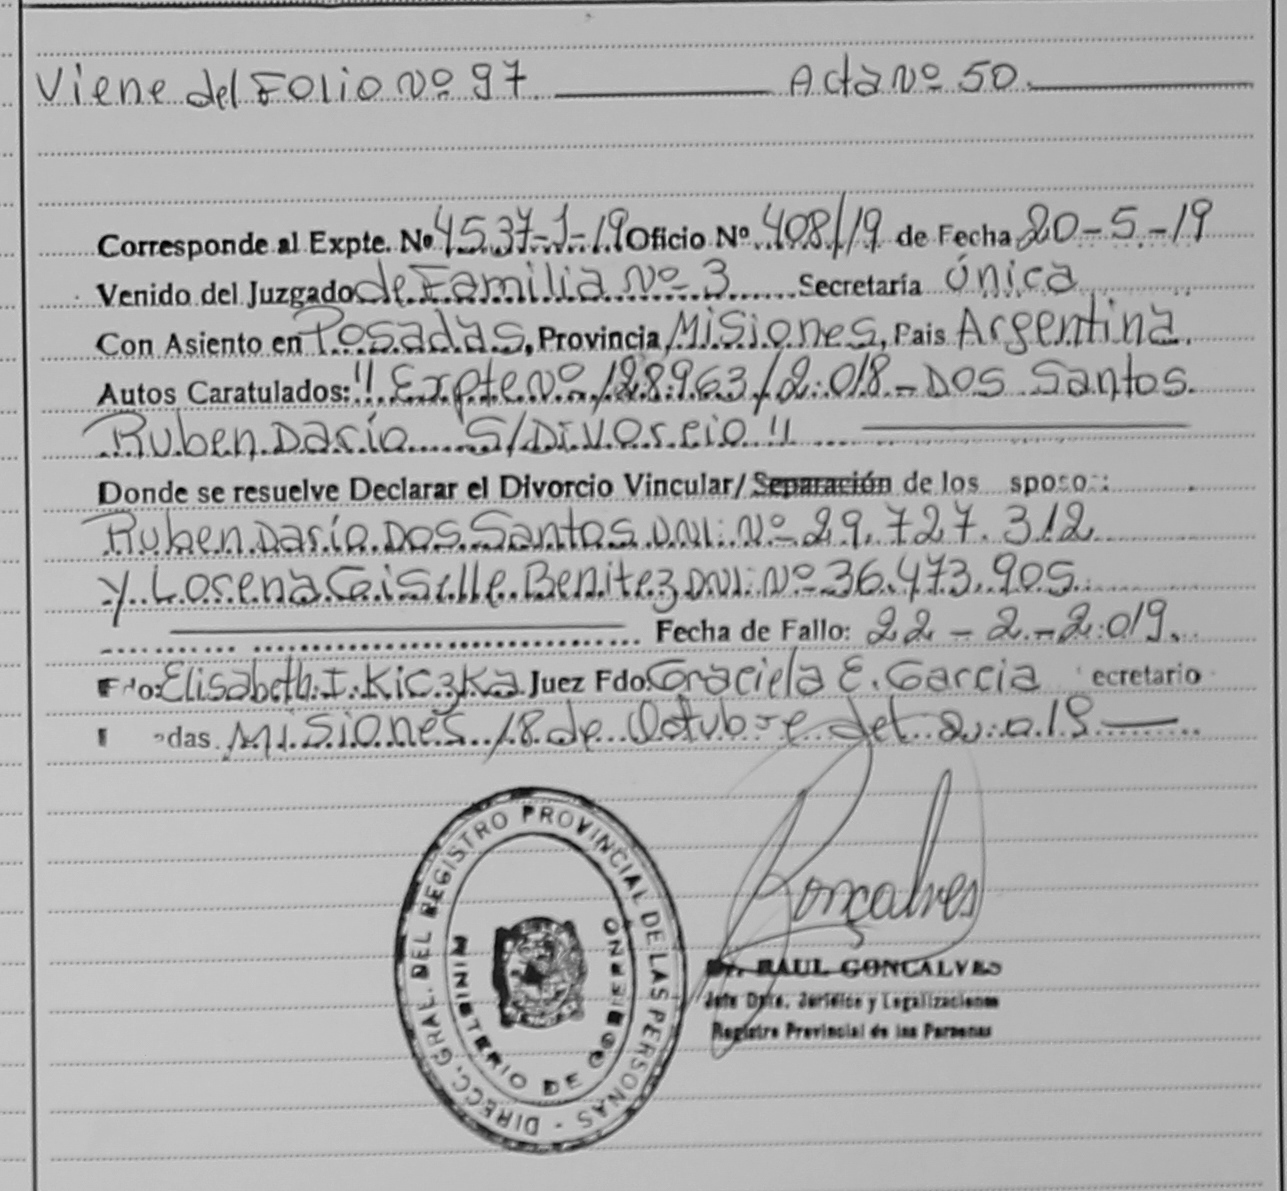 Viene del Folio Nº 97 Acta Nº 50
Corresponde al Expte. Nº 4537-J-19 Oficio Nº 408/19 de Fecha 20-5-19
Venido del Juzgado de Familia Nº 3 Secretaría única
Con Asiento en Posadas, Provincia Misiones, Pais Argentina.
Autos Caratulados: "Expte Nº 128963/2.018 - Dos Santos
Ruben Darío S/Divorcio"
Donde se resuelve Declarar el Divorcio Vincular/Separación de los sposo
Ruben Darío Dos Santos DNI: Nº 29.727.312
y Lorena Giselle Benitez DNI: Nº 36.473.905.
Fecha de Fallo: 22-2-2.019.
Fdo: Elisabeth I. Kiczka Juez Fdo. Graciela E. Garcia ecretario
das Misiones 18 de Octubre del 2.019
DIRECC. GRAL. DEL REGISTRO PROVINCIAL DE LAS PERSONAS -
MINISTERIO DE GOBIERNO
Goncalves
Dr. RAUL GONCALVES
Jefe Dpto. Jurídico y Legalizaciones
Registro Provincial de las Personas